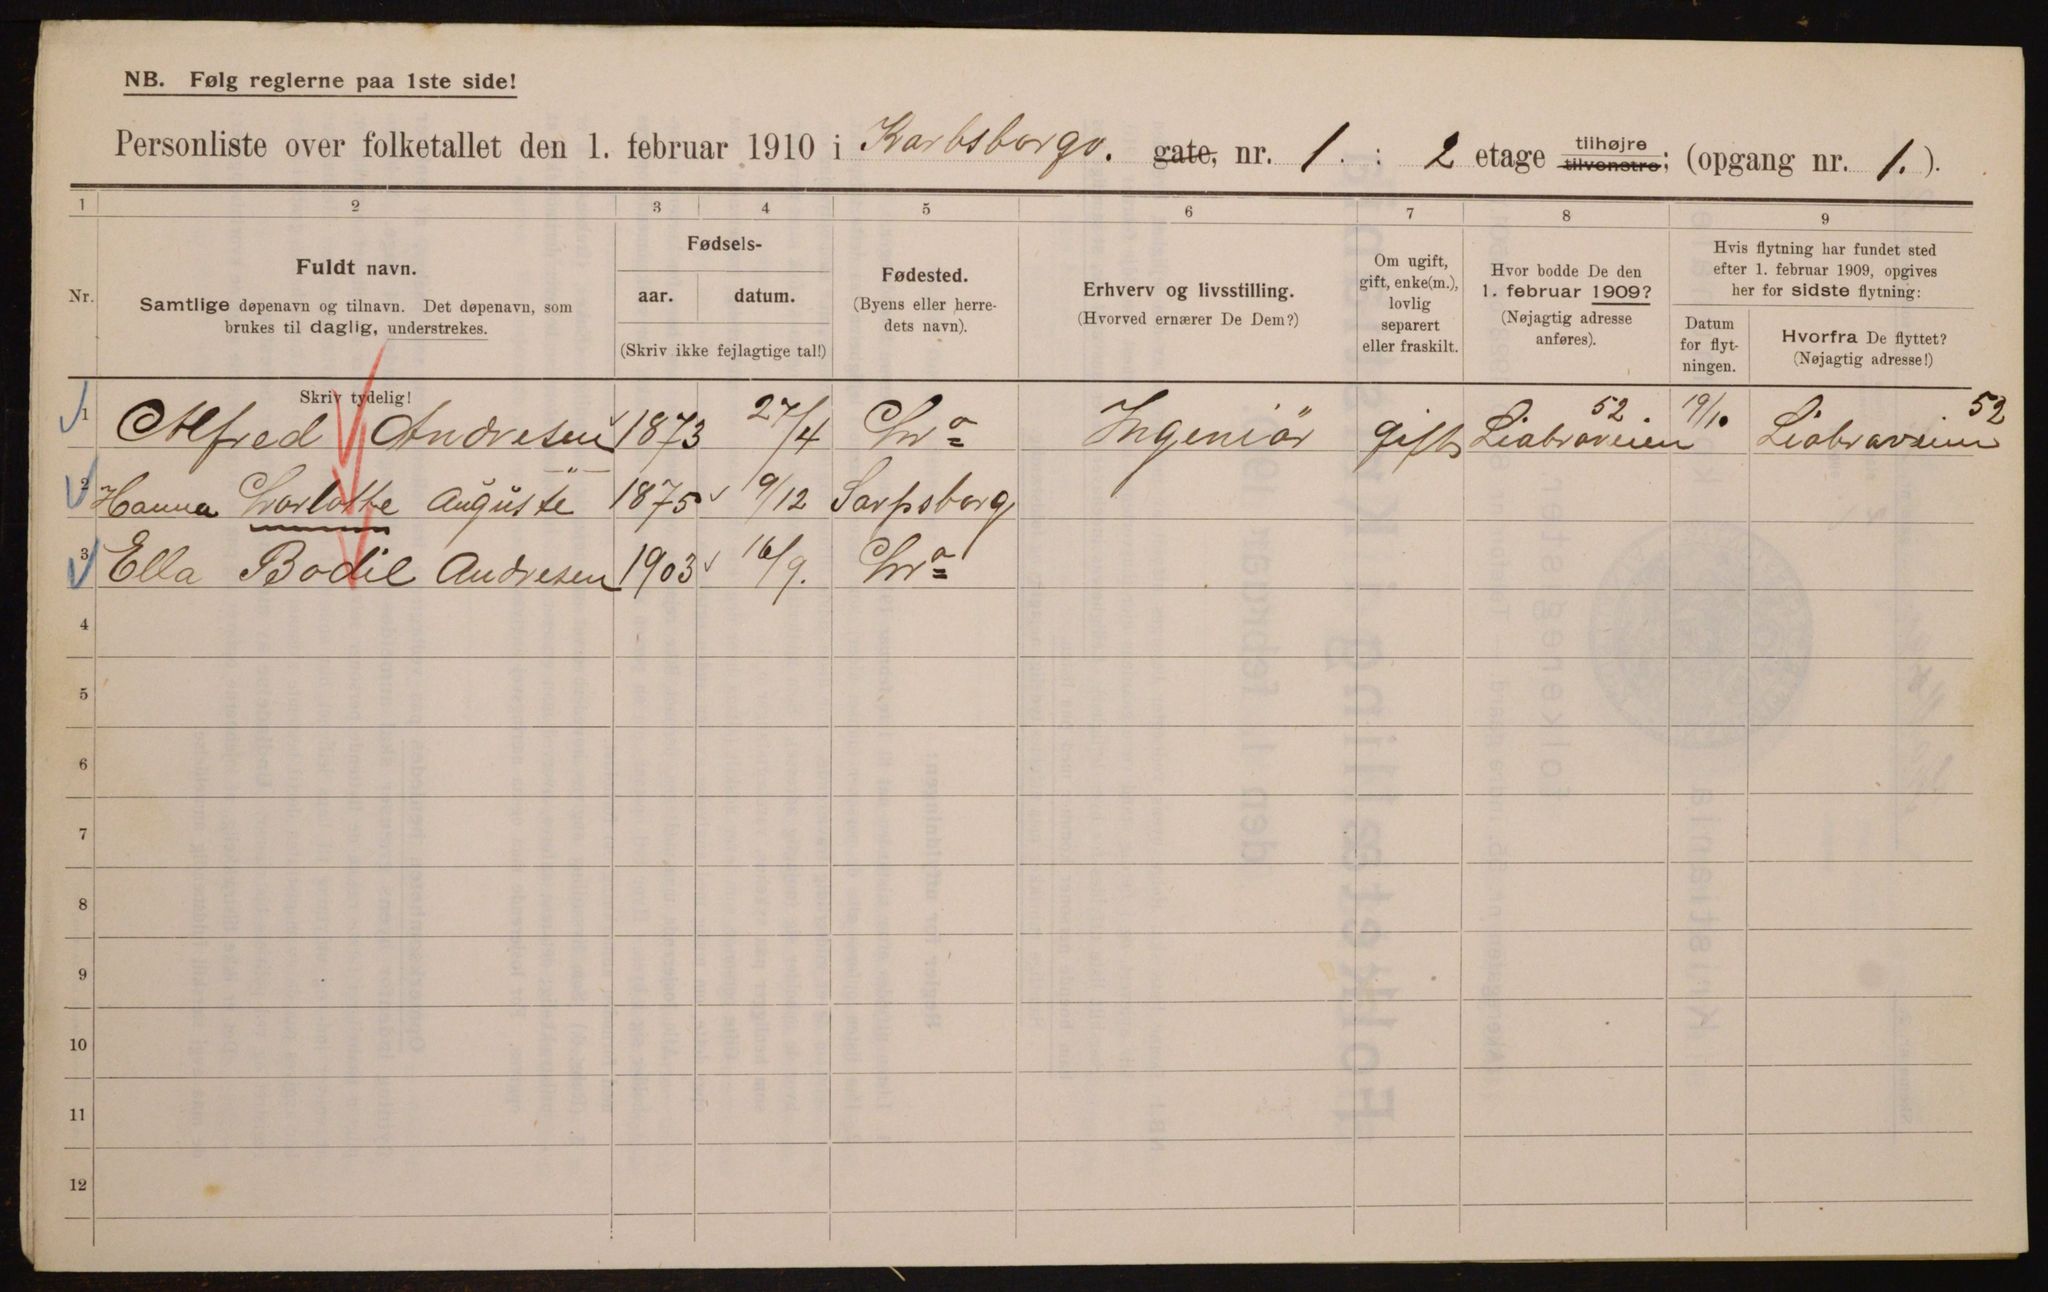 NB. Følg reglerne paa 1ste side!
Personliste over folketallet den 1. februar 1910 i Karlsborgv. gate, nr. 1. : 2 etage tilhøjre tilvenstre; (opgang nr. 1.).
1 2 3 4 5 6 7 8 9
Nr.
Fuldt navn.
Samtlige døpenavn og tilnavn. Det døpenavn, som
brukes til daglig, understrekes.
Fødsels-
aar. datum.
(Skriv ikke fejlagtige tal!)
Fødested.
(Byens eller herre-
dets navn).
Erhverv og livsstilling.
(Hvorved ernærer De Dem?)
Om ugift,
gift, enke(m.),
lovlig
separert
eller fraskilt.
Hvor bodde De den
1. februar 1909?
(Nøjagtig adresse
anføres).
Hvis flytning har fundet sted
efter 1. februar 1909, opgives
her for sidste flytning:
Datum
for flyt-
ningen.
Hvorfra De flyttet?
(Nøjagtig adresse!)
Skriv tydelig!
1 Alfred Andresen 1873 27/4 Chr.a Ingeniör gift Liabraveien 52 19/10 Liabraveien 52
2 Hanna Charlotte Auguste —"— 1875 9/12 Sarpsborg
3 Ella Bodil Andresen 1903 16/9. Chr.a
4
5
6
7
8
9
10
11
12